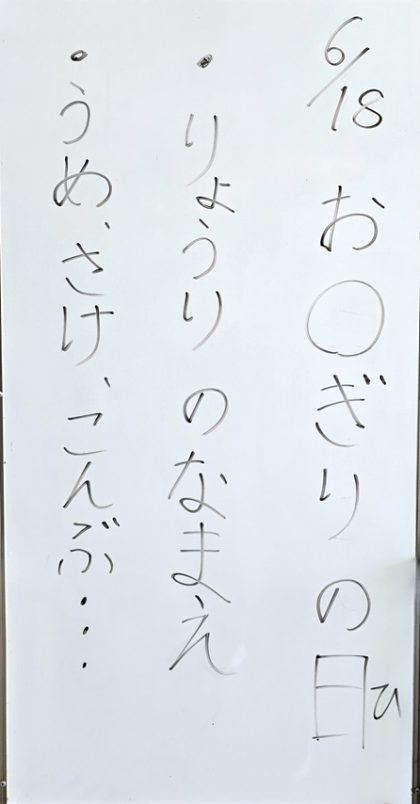 6/18 お〇ぎりの日ひ
・りょうりのなまえ
・うめ、さけ、こんぶ・・・